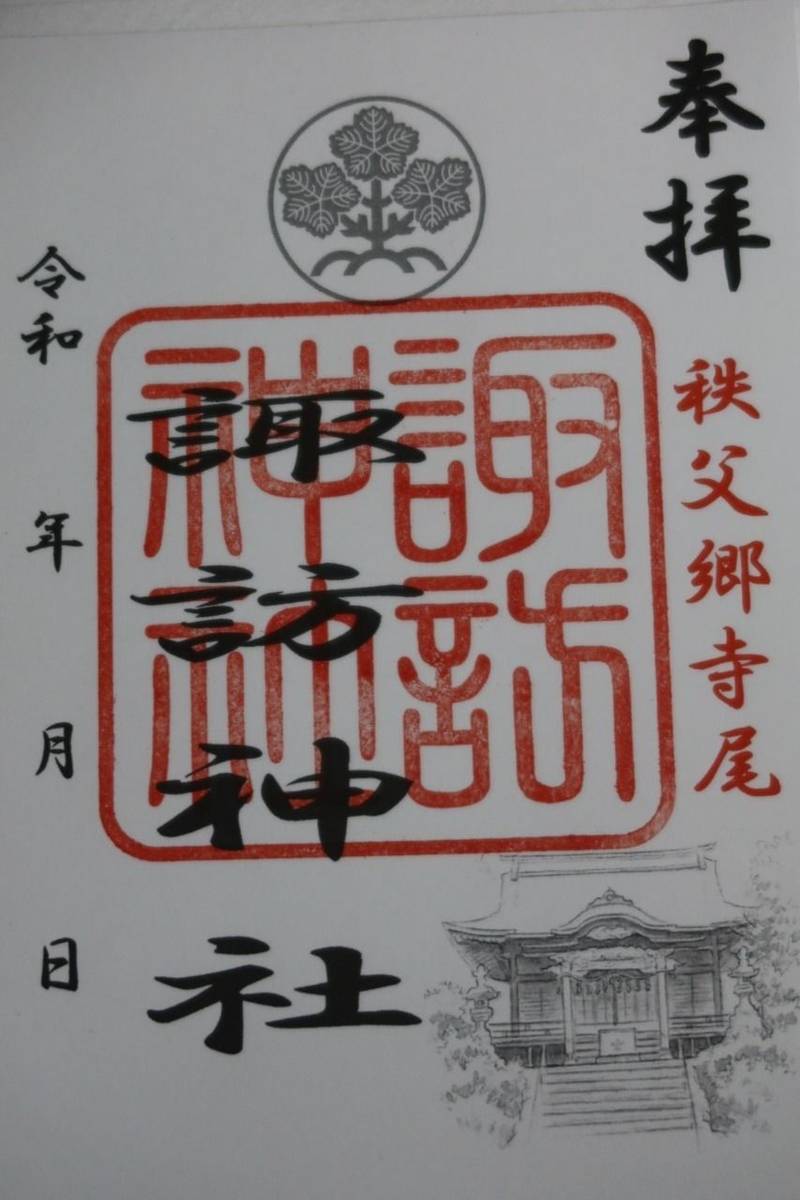 奉拝
秩父郷寺尾
諏訪
神社
諏訪神社
令和 年 月 日